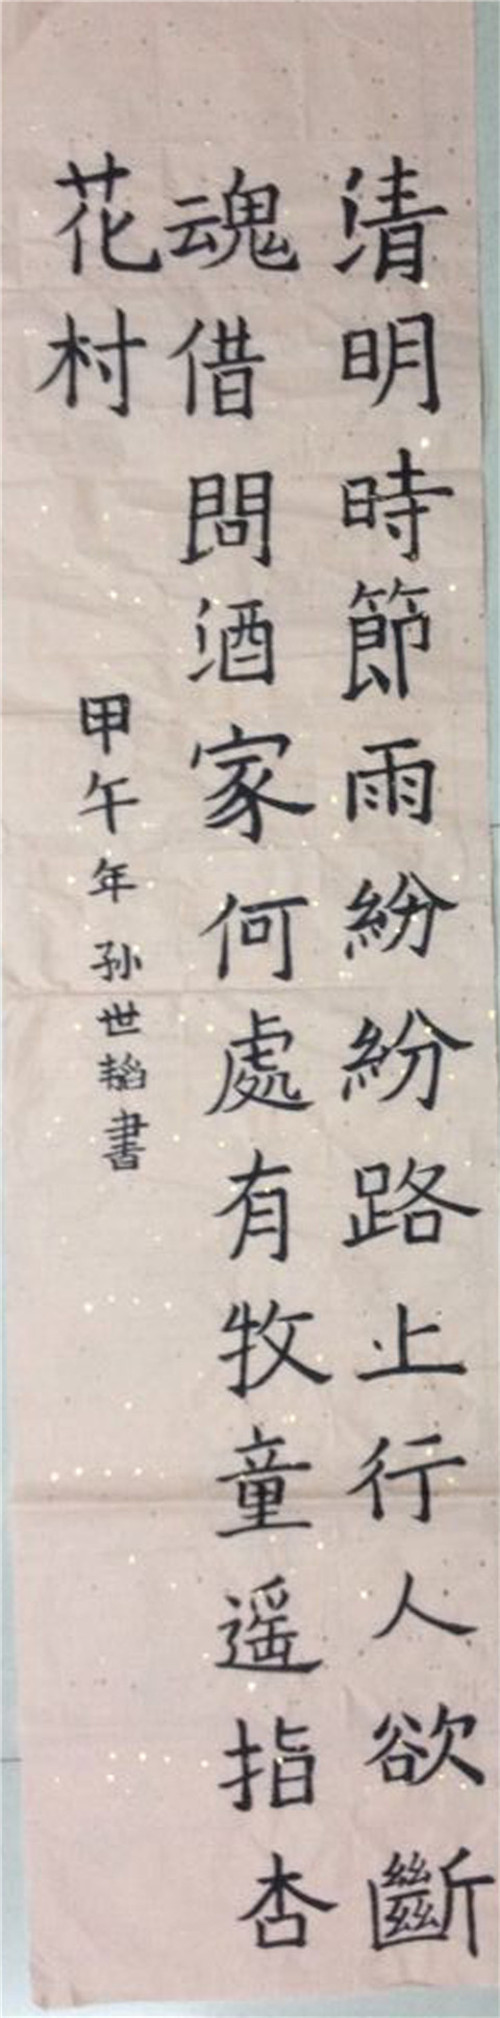 清明時節雨紛紛路上行人欲斷
魂借問酒家何處有牧童遥指杏
花村
甲午年孙世韬書